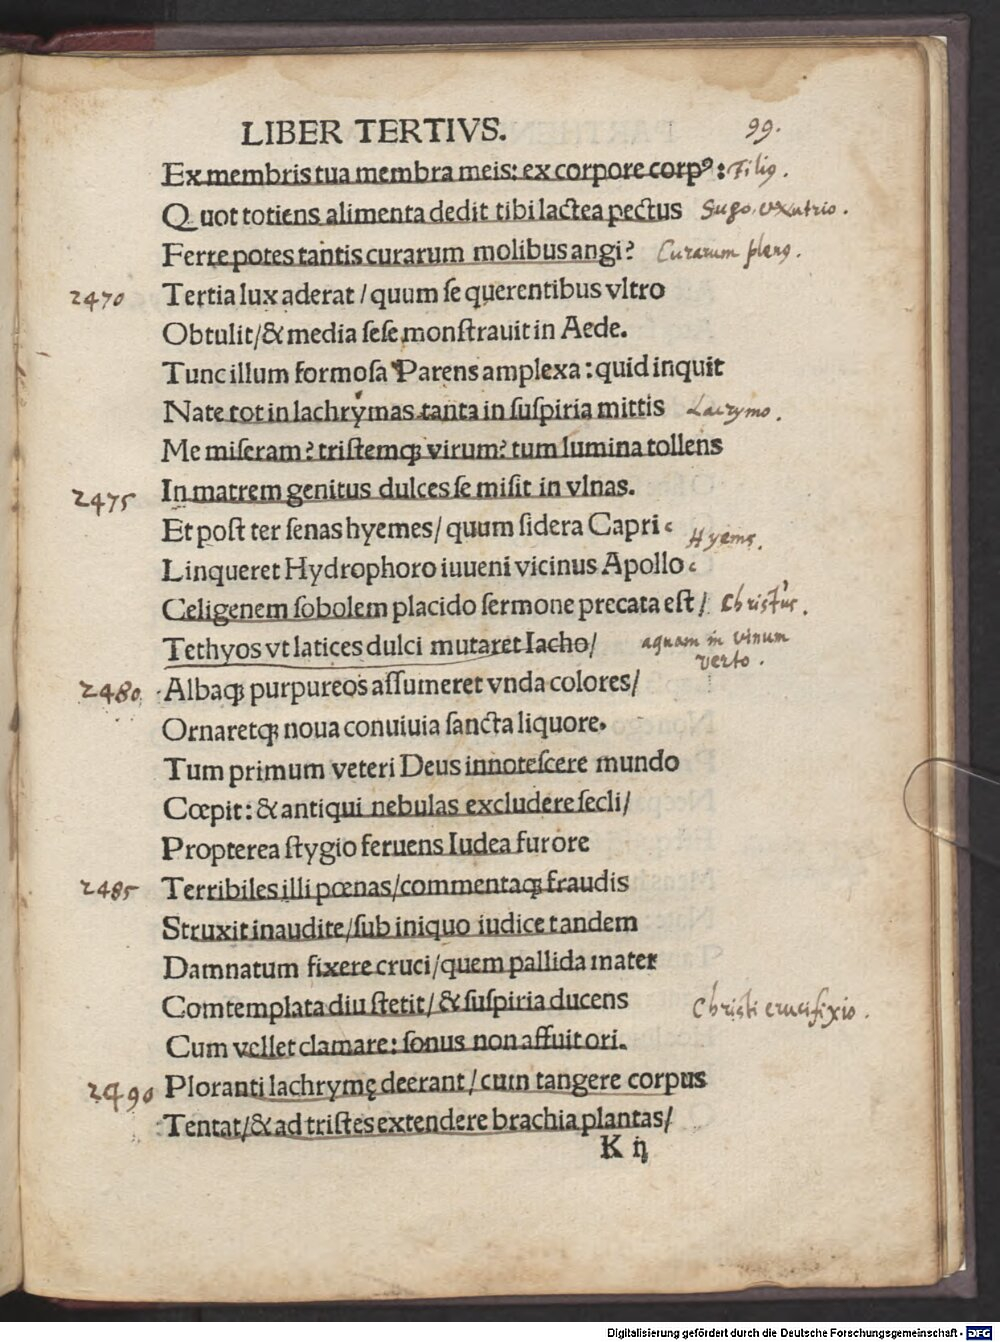 LIBER TERTIVS. 99.
Ex membris tua membra meis: ex corpore corpꝰ: Filiꝰ.
Q uot totiens alimenta dedit tibi lactea pectus
Ferre potes tantis curarum molibus angi? Curarum plenꝰ.
2470 Tertia lux aderat / quum se querentibus vltro
Obtulit/& media sese monstrauit in Aede.
Tunc illum formosa Parens amplexa: quid inquit
Nate tot in lachrymas tanta in suspiria mittis Lacrymo.
Me miseram? tristemqꝫ virum? tum lumina tollens
2475 In matrem genitus dulces se misit in vlnas.
Et post ter senas hyemes/ quum sidera Capri⸗ Hyems.
Linqueret Hydrophoro iuueni vicinus Apollo⸗
Celigenem sobolem placido sermone precata est/ Christus.
Tethyos vt latices dulci mutaret Iacho/ aquam in vinum
verto.
2480 Albaqꝫ purpureos assumeret vnda colores/
Ornaretqꝫ noua conuiuia sancta liquore.
Tum primum veteri Deus innotescere mundo
Cœpit: & antiqui nebulas excludere secli/
Propterea stygio feruens Iudea furore
2485 Terribiles illi pœnas/commentaqꝫ fraudis
Struxit inaudite/sub iniquo iudice tandem
Damnatum fixere cruci/quem pallida mater
Comtemplata diu stetit/ & suspiria ducens Christi crucifixio.
Cum vellet clamare: sonus non affuit ori.
2490 Ploranti lachrymę deerant/cum tangere corpus
Tentat/& ad tristes extendere brachia plantas/
K ij
Digitalisierung gefördert durch die Deutsche Forschungsgemeinschaft - DFG